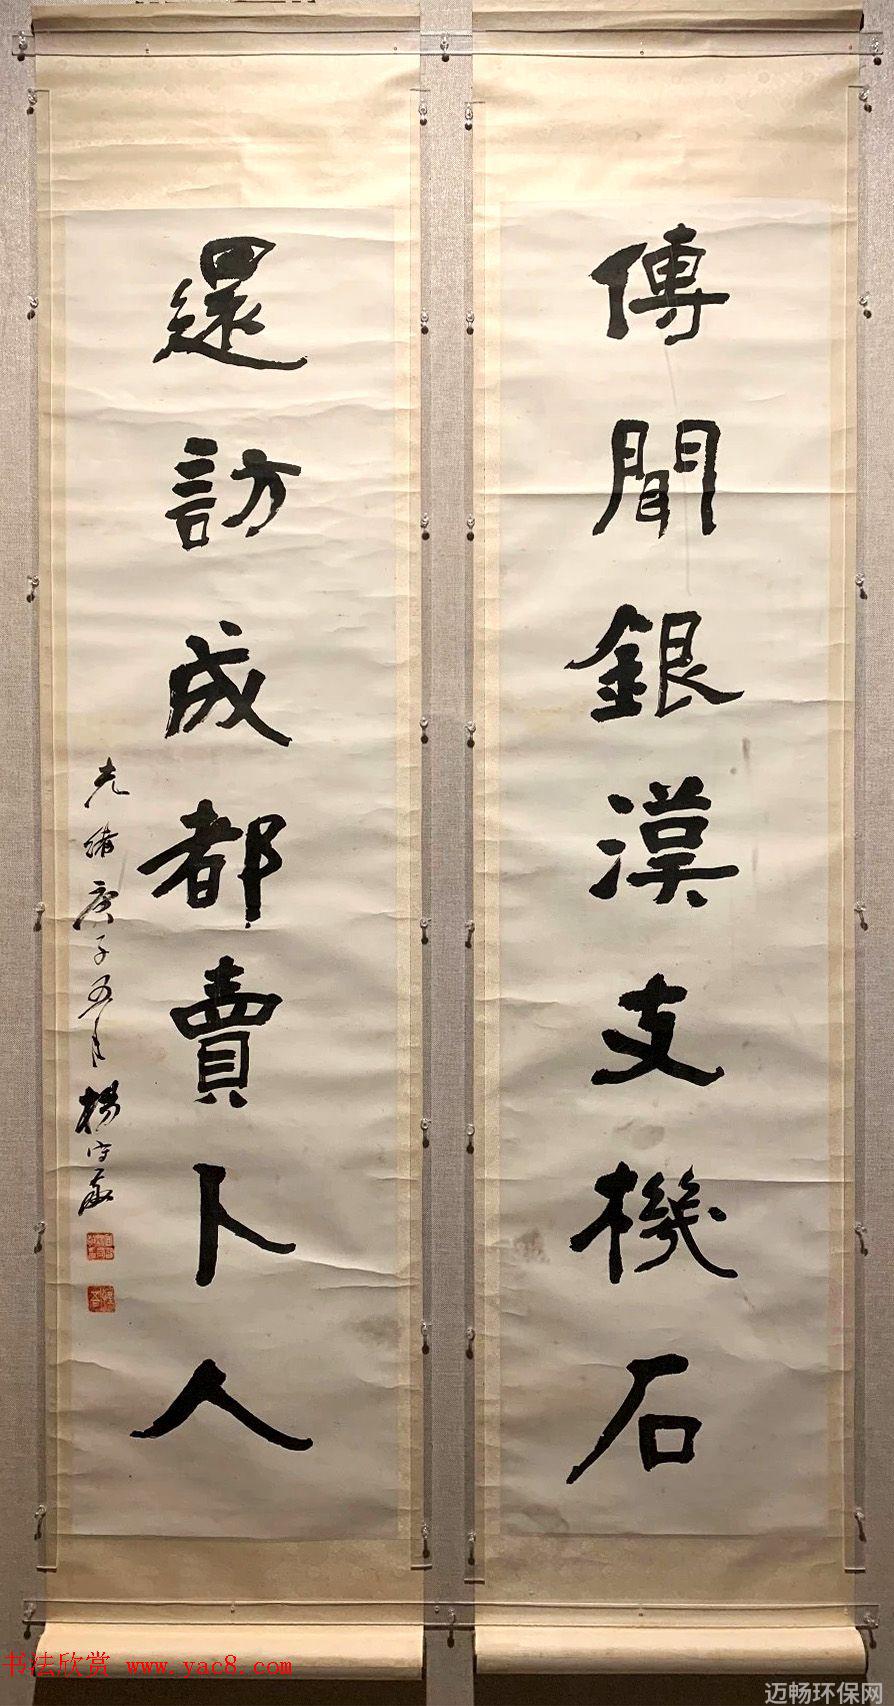 傳聞銀漢支機石
還訪成都賣卜人
光緒庚子五月楊守敬
书法欣赏 www.yac8.com
迈畅环保网